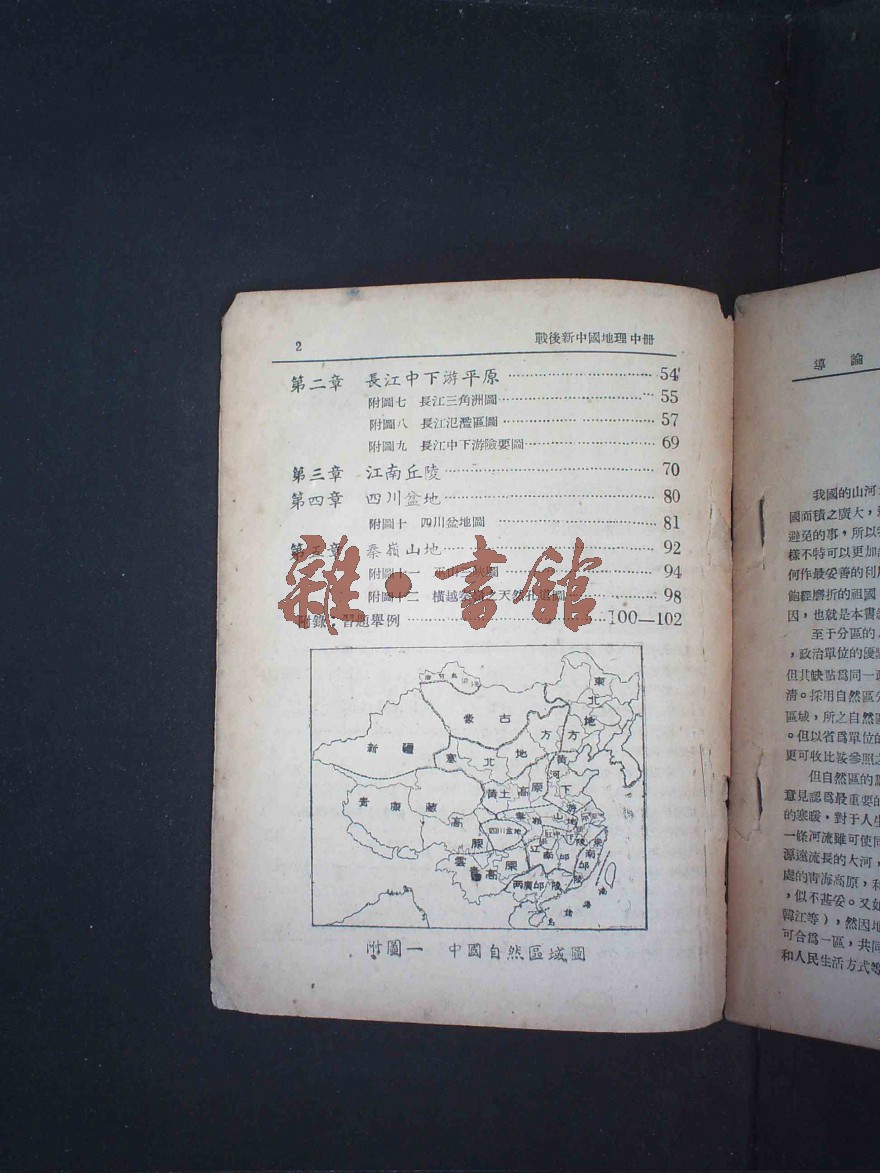 2 戰後新中國地理中冊
第二章 長江中下游平原 54
附圖七 長江三角洲圖 55
附圖八 長江氾濫區圖 57
附圖九 長江中下游險要圖 69
第三章 江南丘陵 70
第四章 四川盆地 80
附圖十 四川盆地圖 81
第五章 秦嶺山地 92
附圖十一 巫山三峽圖 94
附圖十二 橫越秦嶺之天然孔道圖 98
附錄：習題舉例 100—102
雜·書館
東北地方
蒙古地方
新疆
塞北
黃河下游
黃土高原
青康藏高原
秦嶺山地
四川盆地
江南邱陵
東南邱陵
雲貴高原
兩廣邱陵
南海諸島
附圖一 中國自然區域圖
導論
我國的山河
國面積之廣大，
避免的事，所以
樣不特可以更加
何作最妥善的利
飽經磨折的祖國
因，也就是本書
至于分區的
，政治單位的優
但其缺點爲同一
清。採用自然區
區域，所之自然
。但以省爲單位的
更可收比較參照之
但自然區的
意見認爲最重要的
的寒暖，對于人生
一條河流雖可使同
源遠流長的大河，
處的青海高原，和
，似不甚妥。又如
韓江等），然因地
可合爲一區，共同
和人民生活方式等